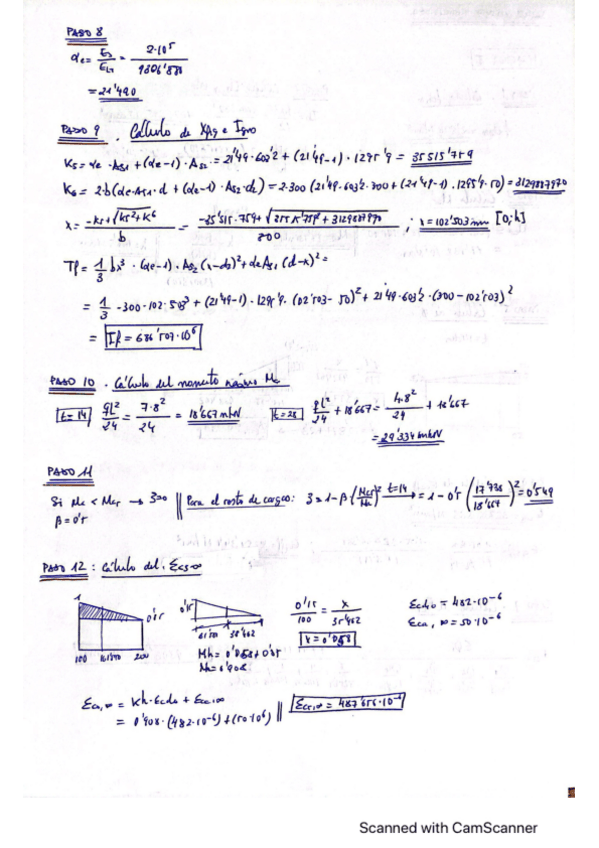 PASO 8
αe = Es/Ec = 2·10^5 / 9306'878
= 21'490
PASO 9 . Cálculo de XAg e Ifis
K5 = αe · As1 + (αe-1) · As2 = 21'49 · 603'2 + (21'49-1) · 1295'9 = 35515'759
K6 = 2·b(αe·As1·d + (αe-1)·As2·d2) = 2·300 (21'49·603'2·300 + (21'49-1)·1295'9·50) = 3129887970
x = -K5+√K5²+K6 / b = / 300 ∴ x=102'503mm [0;h]
If = 1/3 bx³ · (αe-1) · As2 (x-d2)² + αe As1 (d-x)² =
= 1/3 · 300 · 102'503 + (21'49-1) · 1295'9 · (102'503-50)² + 21'49 · 603'2 · (300-102'503)²
= If = 686'507·10^6
PASO 10 . Cálculo del momento máximo Mc
t=14 qL²/24 = 7·8²/24 = 18'667 mkN t=28 qL²/24 + 18'667 = 4·8²/24 + 18'667
= 29'334 mkN
PASO 11
Si Mc < Mcr → 3=0 || Para el resto de cargas: 3 = 1-β (Mcr/Mc)² t=14 → = 1-0'5 (17'738/18'667)² = 0'549
β=0'5
PASO 12 : Cálculo del . Ecs∞
1 0'85 0'15 0'15/100 = x/35'402 Ecd,0 = 482·10^-6
100 200 35'402 x = 0'058 Eca,∞ = 50·10^-6
Kh = 0'058+0'85
Kh = 0'908
Ecs,∞ = Kh·Ecd,0 + Eca,∞
= 0'908·(482·10^-6)+(50·10^-6) || Ecs,∞ = 487'656·10^-6
Scanned with CamScanner